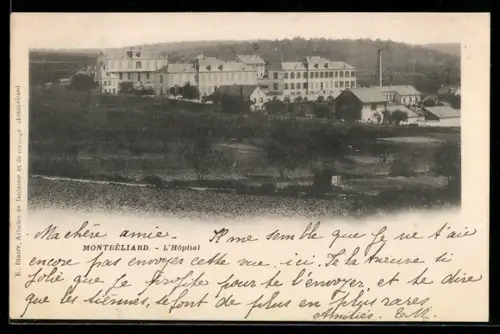 E. Biarry, Articles de fantaisie et de ménage Montbéliard
Ma chère amie. - Il me semble que je ne t'aie
MONTBÉLIARD. - L'Hôpital
encore pas envoyer cette vue ici. Je la trouve si
jolie que je profite pour te l'envoyer, et te dire
que les tiennes, se font de plus en plus rares
Amitiés. E.M.